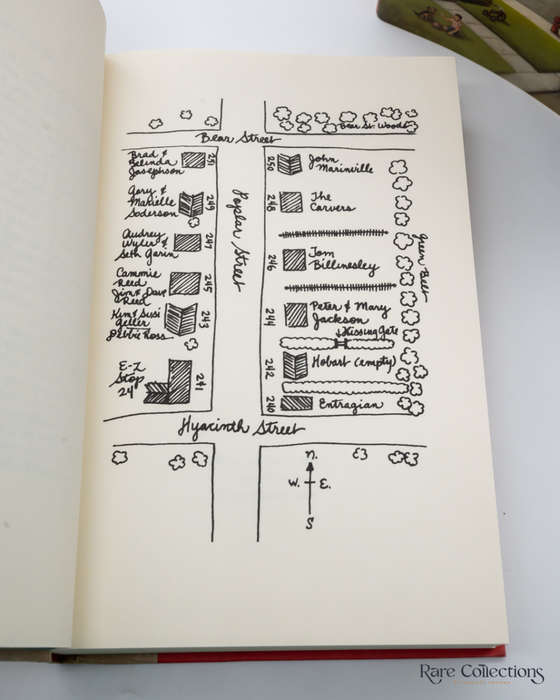 Bear Street
Bear St. Woods
Brad &
Belinda
Josephson
251
Gary &
Marielle
Soderson
249
Audrey
Wyler &
Seth Garin
247
Cammie
Reed
Jim & Dave
Reed
245
Kim & Susi
Geller
Debbie Ross
243
E-Z
Stop
24
241
Poplar Street
250
John
Marinville
248
The
Carvers
246
Tom
Billingsley
244
Peter & Mary
Jackson
Kissing Gate
242
Hobart (empty)
240
Entragian
Green Belt
Hyacinth Street
N.
W.
E.
S
Rare Collections